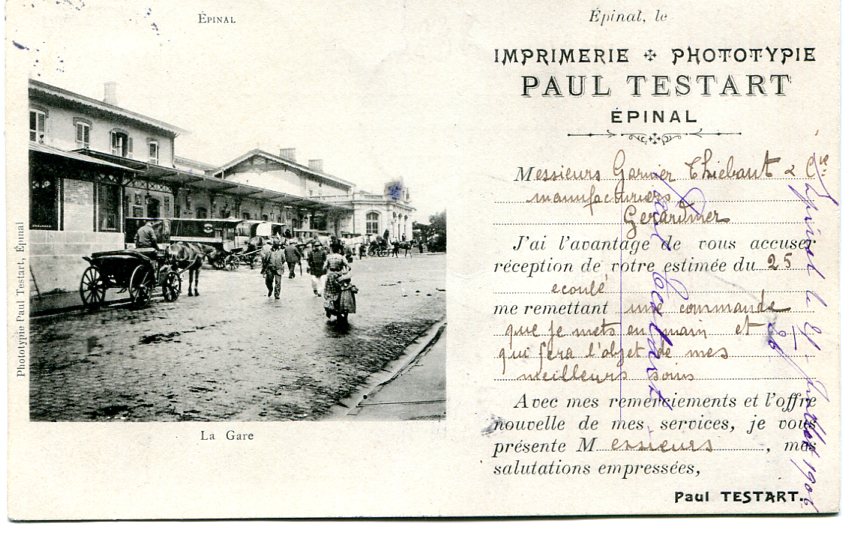 ÉPINAL
Phototypie Paul Testart, Épinal
La Gare
Épinal, le
IMPRIMERIE PHOTOTYPIE
PAUL TESTART
ÉPINAL
Messieurs Garnier Thiébaut & Cie
manufacturiers
Gerardmer
J'ai l'avantage de vous accuser
réception de votre estimée du 25
ecoulé
me remettant une commande
que je mets en main et
qui fera l'objet de mes
meilleurs soins
Avec mes remerciements et l'offre
nouvelle de mes services, je vous
présente Messieurs, mes
salutations empressées,
Paul TESTART.
Epinal le Juillet 1906
Paul Testart